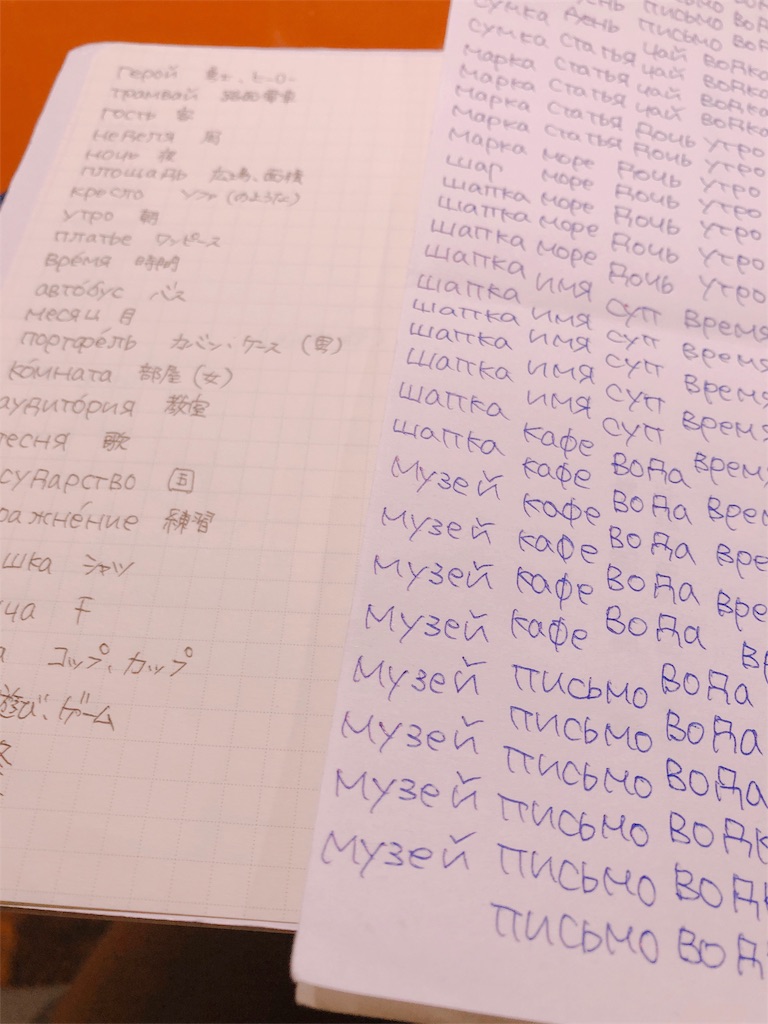 герой ヒーロー
трамвай 路面電車
гость 客
неделя 周
ночь 夜
площадь 広場、面積
кресло ソファ
утро 朝
платье ワンピース
время 時間
авто́бус バス
месяц 月
портфе́ль カバン、ケース (男)
ко́мната 部屋 (女)
аудито́рия 教室
есня 歌
сударство 国
ражне́ние 練習
шка シャツ
ча
а コップ、カップ
遊び、ゲーム
сумка день письмо вод
сумка статья чай водка
марка статья чай водка
марка статья чай водка
марка статья дочь утро
марка статья дочь утро
марка море дочь утро
шар море дочь утро
шапка море дочь утро
шапка море дочь утро
шапка море дочь утро
шапка имя суп время
шапка имя суп время
шапка имя суп время
шапка имя суп время
шапка имя суп время
шапка кафе вода врем
музей кафе вода врем
музей кафе вода вре
музей кафе вода вре
музей кафе вода вр
музей письмо вода
музей письмо вода
музей письмо вода
музей письмо водк
музей письмо вод
письмо вод